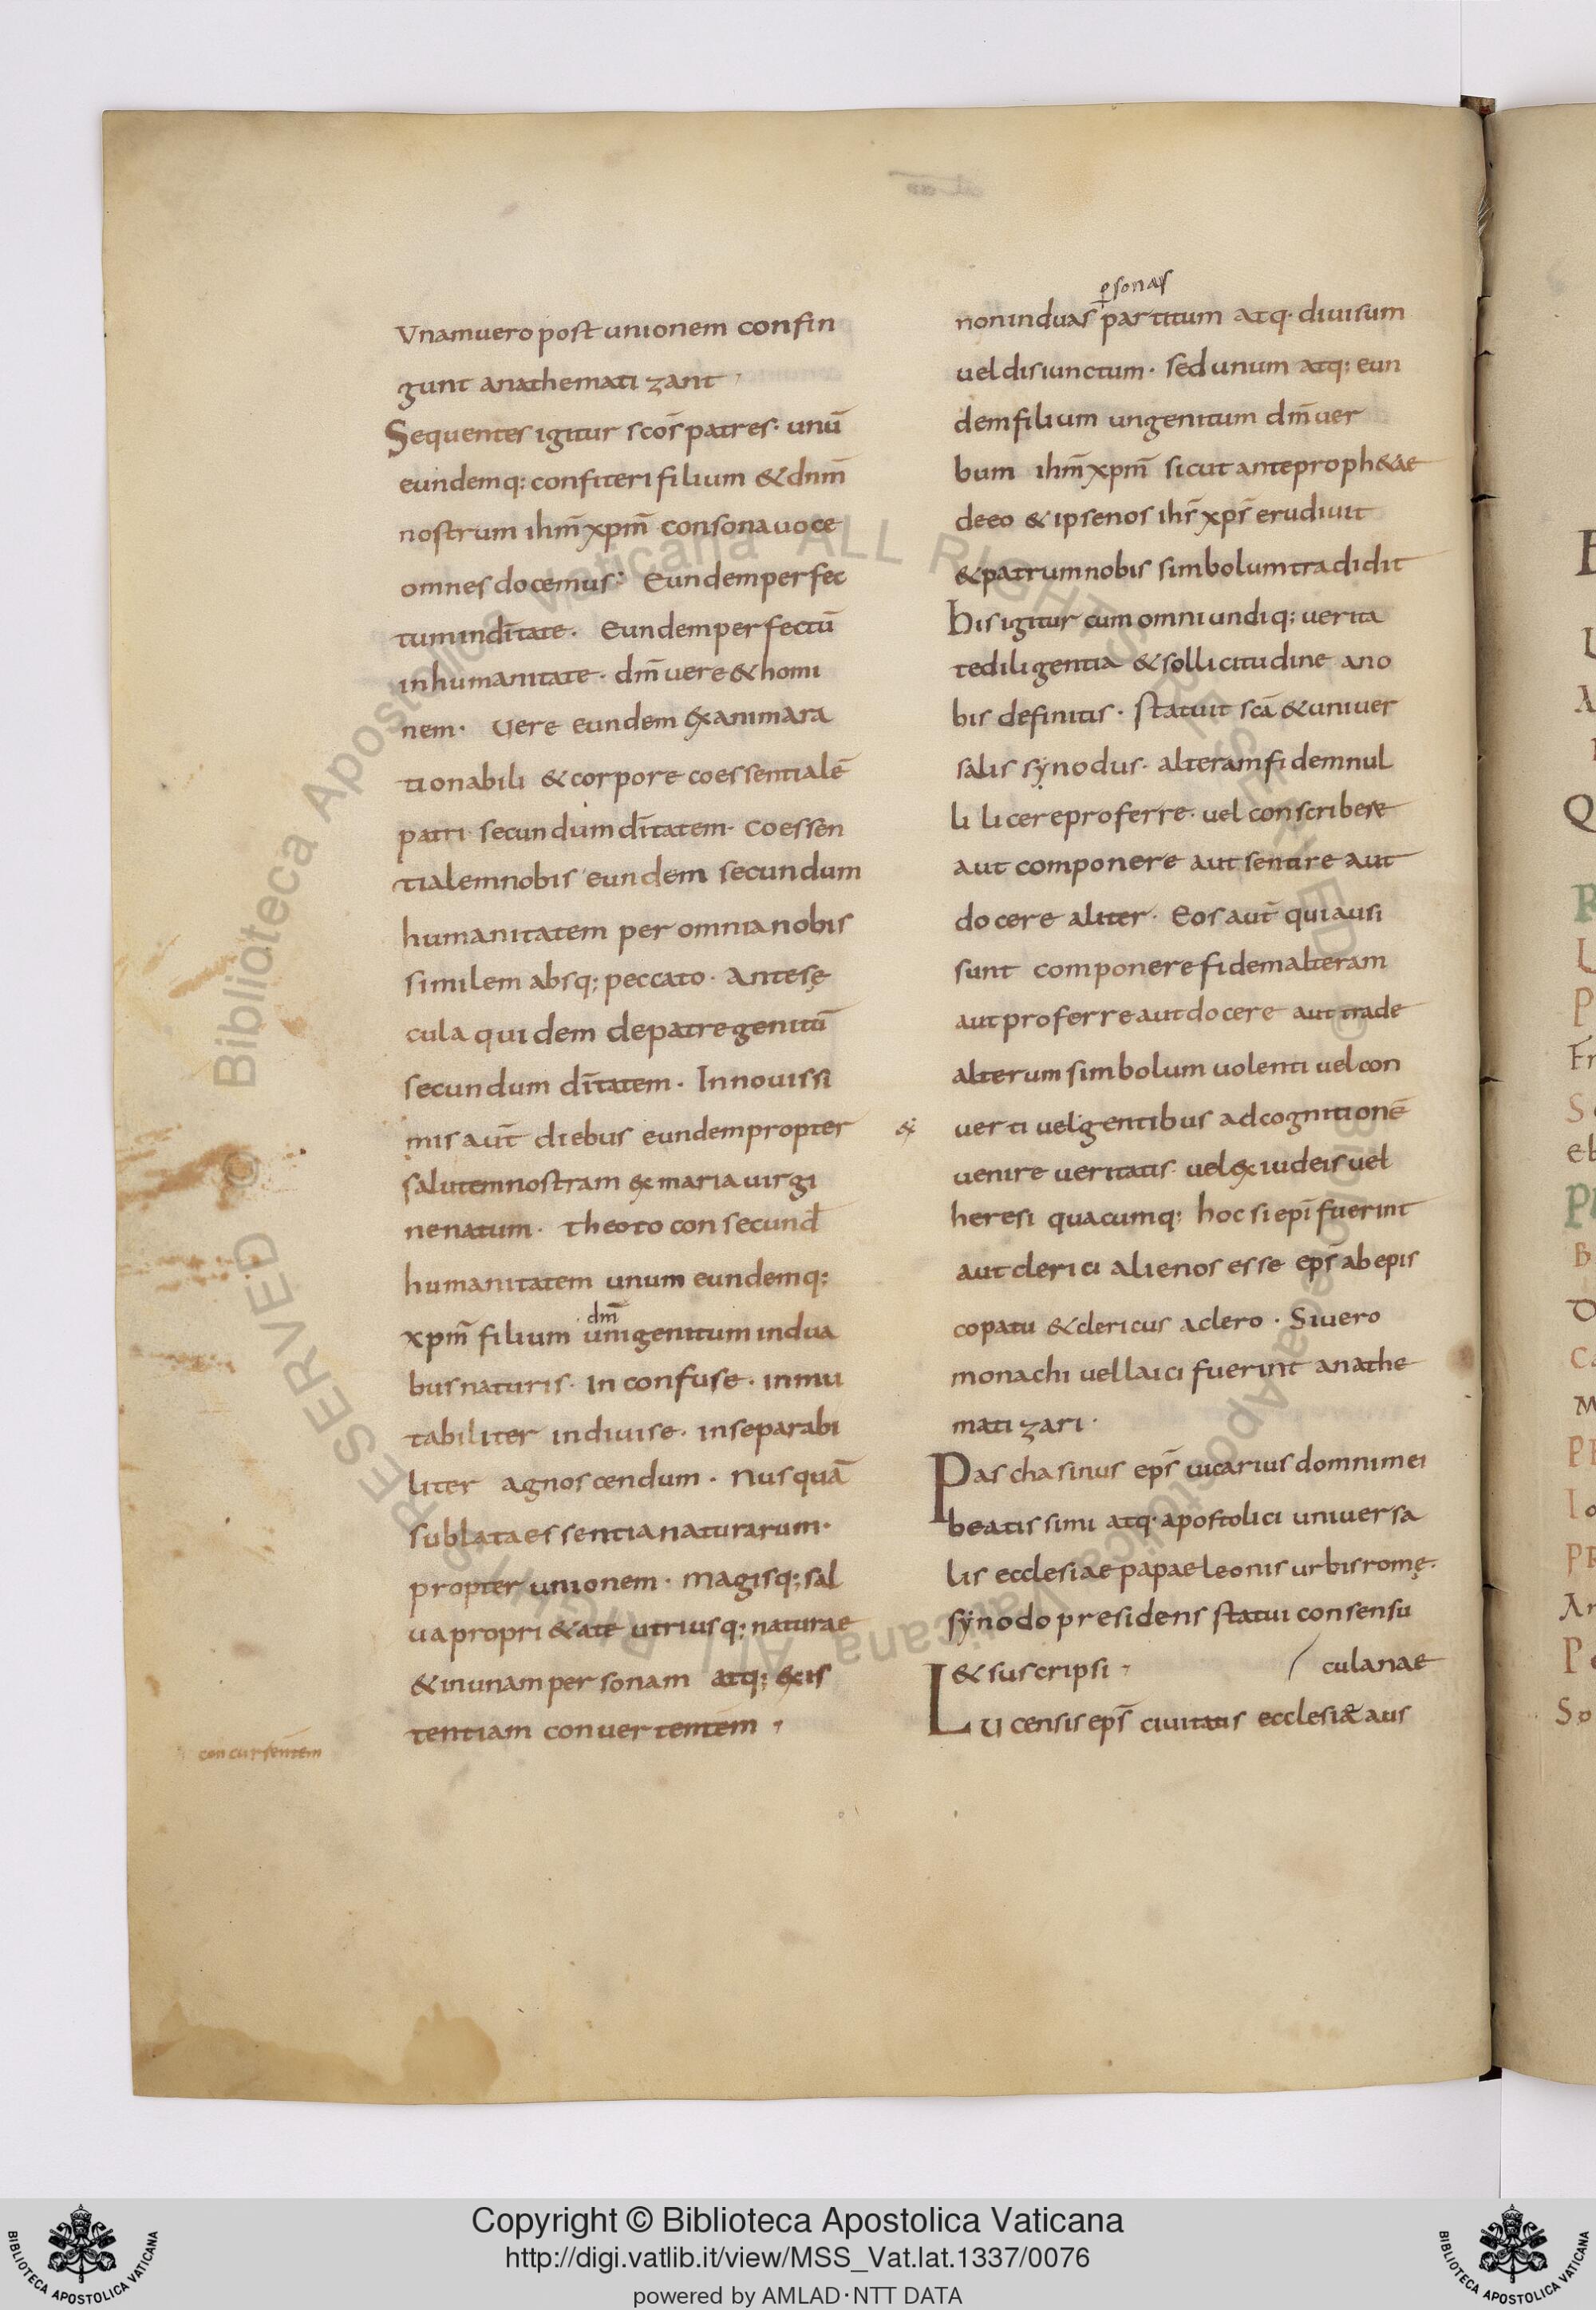 Unamuero post unionem confin
gunt anathematizant
Sequentes igitur scōs patres· unū
eundemq; confiteri filium & dnm̄
nostrum ihm̄ xpm̄ consona uoce
omnes docemus; Eundem perfec
tum in dītate· Eundem perfectū
in humanitate· dm̄ uere & homi
nem· Uere eundem ex anima ra
tionabili & corpore coessentialē
patri secundum dītatem· Coessen
tialem nobis eundem secundum
humanitatem per omnia nobis
similem absq; peccato· Ante sę
cula quidem de patre genitū
secundum dītatem· In nouissi
mis aut̄ diebus eundem propter
salutem nostram ex maria uirgi
ne natum· theotocon secund̄
humanitatem unum eundemq;
dm̄
xpm̄ filium unigenitum in dua
bus naturis· in confuse· inmu
tabiliter indiuise· inseparabi
liter agnoscendum· Nusquā
sublata essentia naturarum·
propter unionem· magisq; sal
ua propri&ate utriusq; naturae
& in unam personam atq; exis
tentiam conuertentem
concursentem
psonas
non in duas partitum atq· diuisum
uel disiunctum· sed unum atq; eun
dem filium ungenitum dm̄ uer
bum ihm̄ xpm̄ sicut ante proph&ae
de eo & ipse nos ihs̄ xps̄ erudiuit
& patrum nobis simbolum tradidit
his igitur cum omni undiq; uerita
te diligentia & sollicitudine a no
bis definitis· statuit scā & uniuer
salis synodus· alteram fidem nul
li licere proferre· uel conscribere
aut componere aut sentire aut
docere aliter· Eos aut̄ qui ausi
sunt componere fidem alteram
aut proferre aut docere aut trade
alterum simbolum uolenti uel con
& uerti uel gentibus ad cognitionē
uenire ueritatis· uel ex iudeis uel
heresi quacumq; hoc si epī fuerint
aut clerici alienos esse eps̄ ab epis
copatu & clericus a clero· Si uero
monachi uel laici fuerint anathe
matizari·
Paschasinus eps̄ uicarius domni mei
beatissimi atq· apostolici uniuersa
lis ecclesiae papae leonis urbis romę·
synodo presidens statui consensu
& suscripsi culanae
Lucensis eps̄ ciuitatis ecclesiae aus
Copyright © Biblioteca Apostolica Vaticana
http://digi.vatlib.it/view/MSS_Vat.lat.1337/0076
powered by AMLAD·NTT DATA
BIBLIOTECA APOSTOLICA VATICANA
BIBLIOTECA APOSTOLICA VATICANA